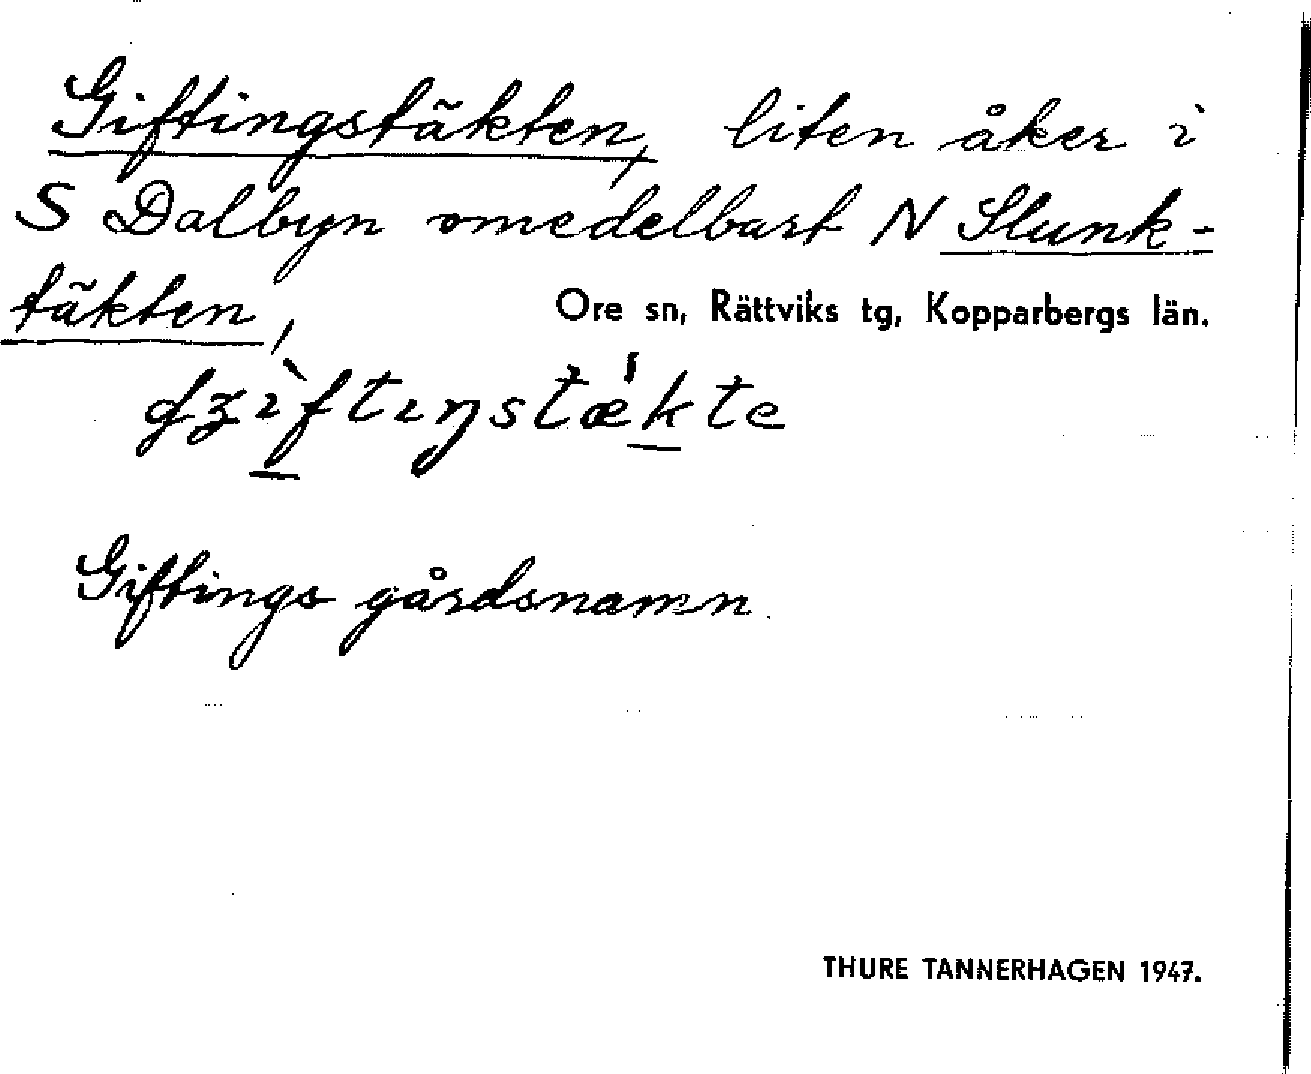 Giftingstäkten, liten åker i
S Dalbyn omedelbart N Slunk-
täkten,
Ore sn, Rättviks tg, Kopparbergs län.
Giftings gårdsnamn.
THURE TANNERHAGEN 1947.